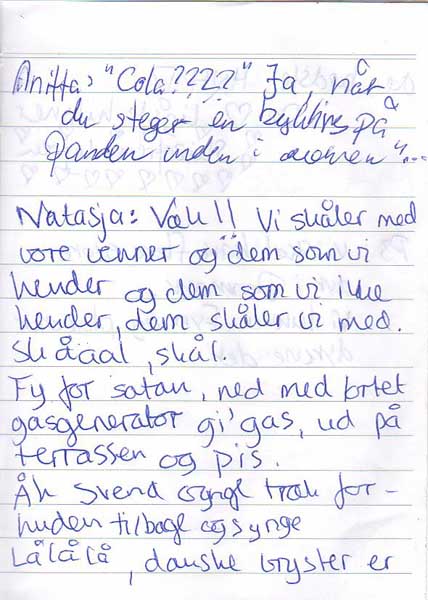 Anitta: "Cola????" Ja, når
du steger en kylling på
panden inden i ovnen"...
Natasja: Væk!! Vi skåler med
vore venner og dem som vi
kender og dem som vi ikke
kender, dem skåler vi med.
Skåååål, skål.
Fy for satan, ned med lortet
gasgenerator gi' gas, ud på
terrassen og pis.
Åh Svend Gyngl træk for-
huden tilbage og synge
Lålålå, danske bryster er